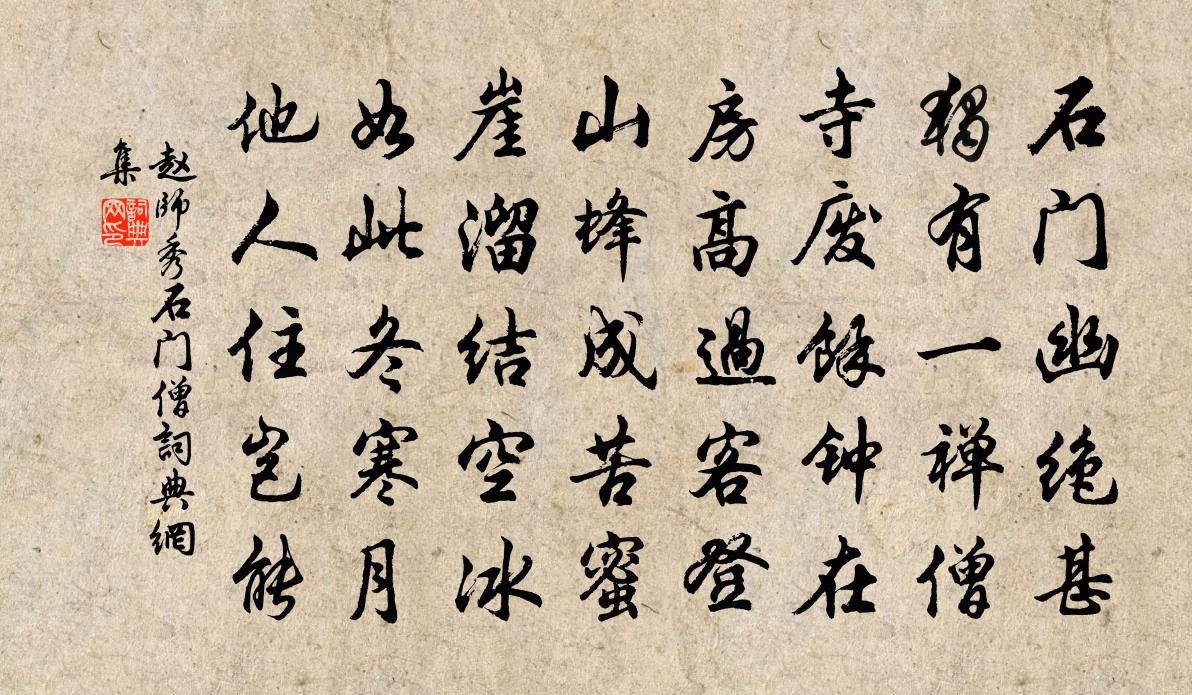 石门幽绝甚
独有一禅僧
寺废馀钟在
房高过客登
山蜂成苦蜜
崖溜结空冰
如此冬寒月
他人住岂能
赵师秀石门僧詞典網
集
詞典
网印